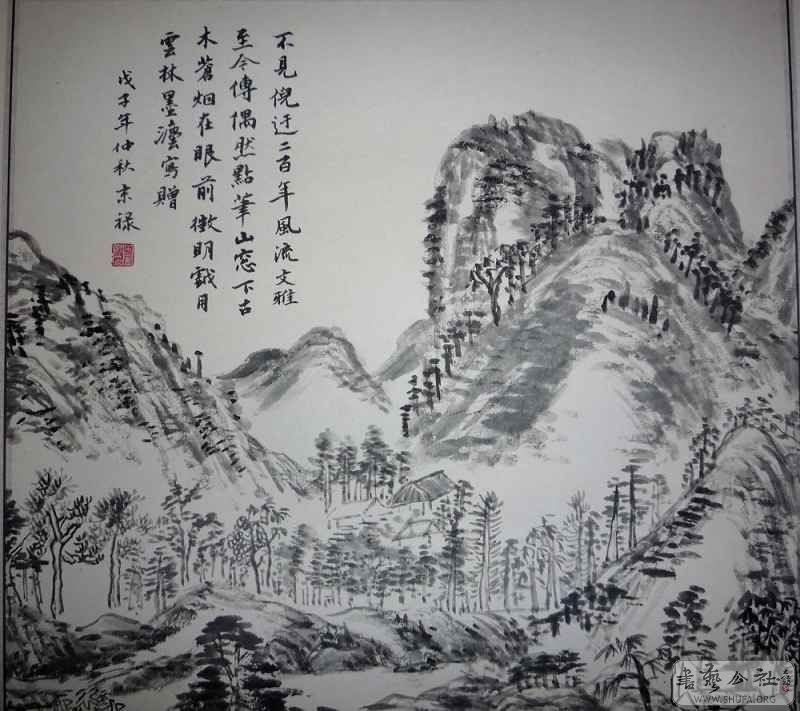 不見倪迂二百年風流文雅
至今傳偶然點筆山窓下古
木蒼烟在眼前徵明戯月
雲林墨瀋寫贈
戊子年仲秋京禄
書藝公社
WWW.SHUFA.ORG